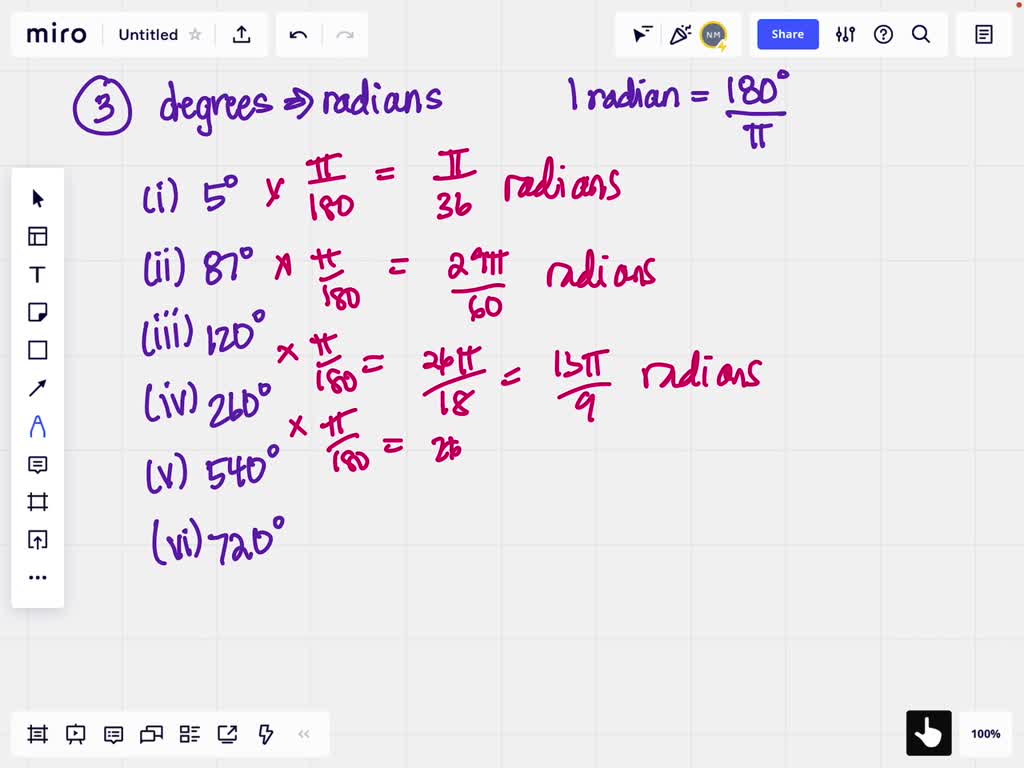 miro Untitled NM Share
③ degrees ⇒ radians 1 radian = 180°/π
(i) 5° × π/180 = π/36 radians
(ii) 87° × π/180 = 29π/60 radians
(iii) 120°
× π/180 = 26π/18 = 13π/9 radians
(iv) 260°
× π/180 = 26
(v) 540°
(vi) 720°
T
100%